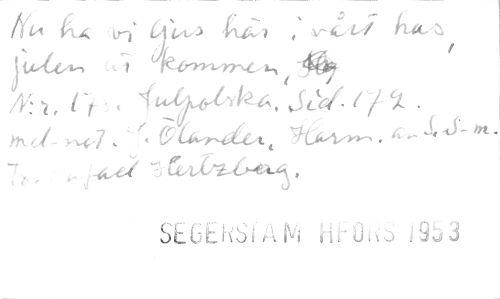 Nu ha vi ljus här i vårt hus,
julen är kommen,
N:r. 173. Julpolska. Sid. 172.
mel-not. J. Ölander, Harm. av S. S-m.
Rafael Hertzberg.
SEGERSTAM HFORS 1953